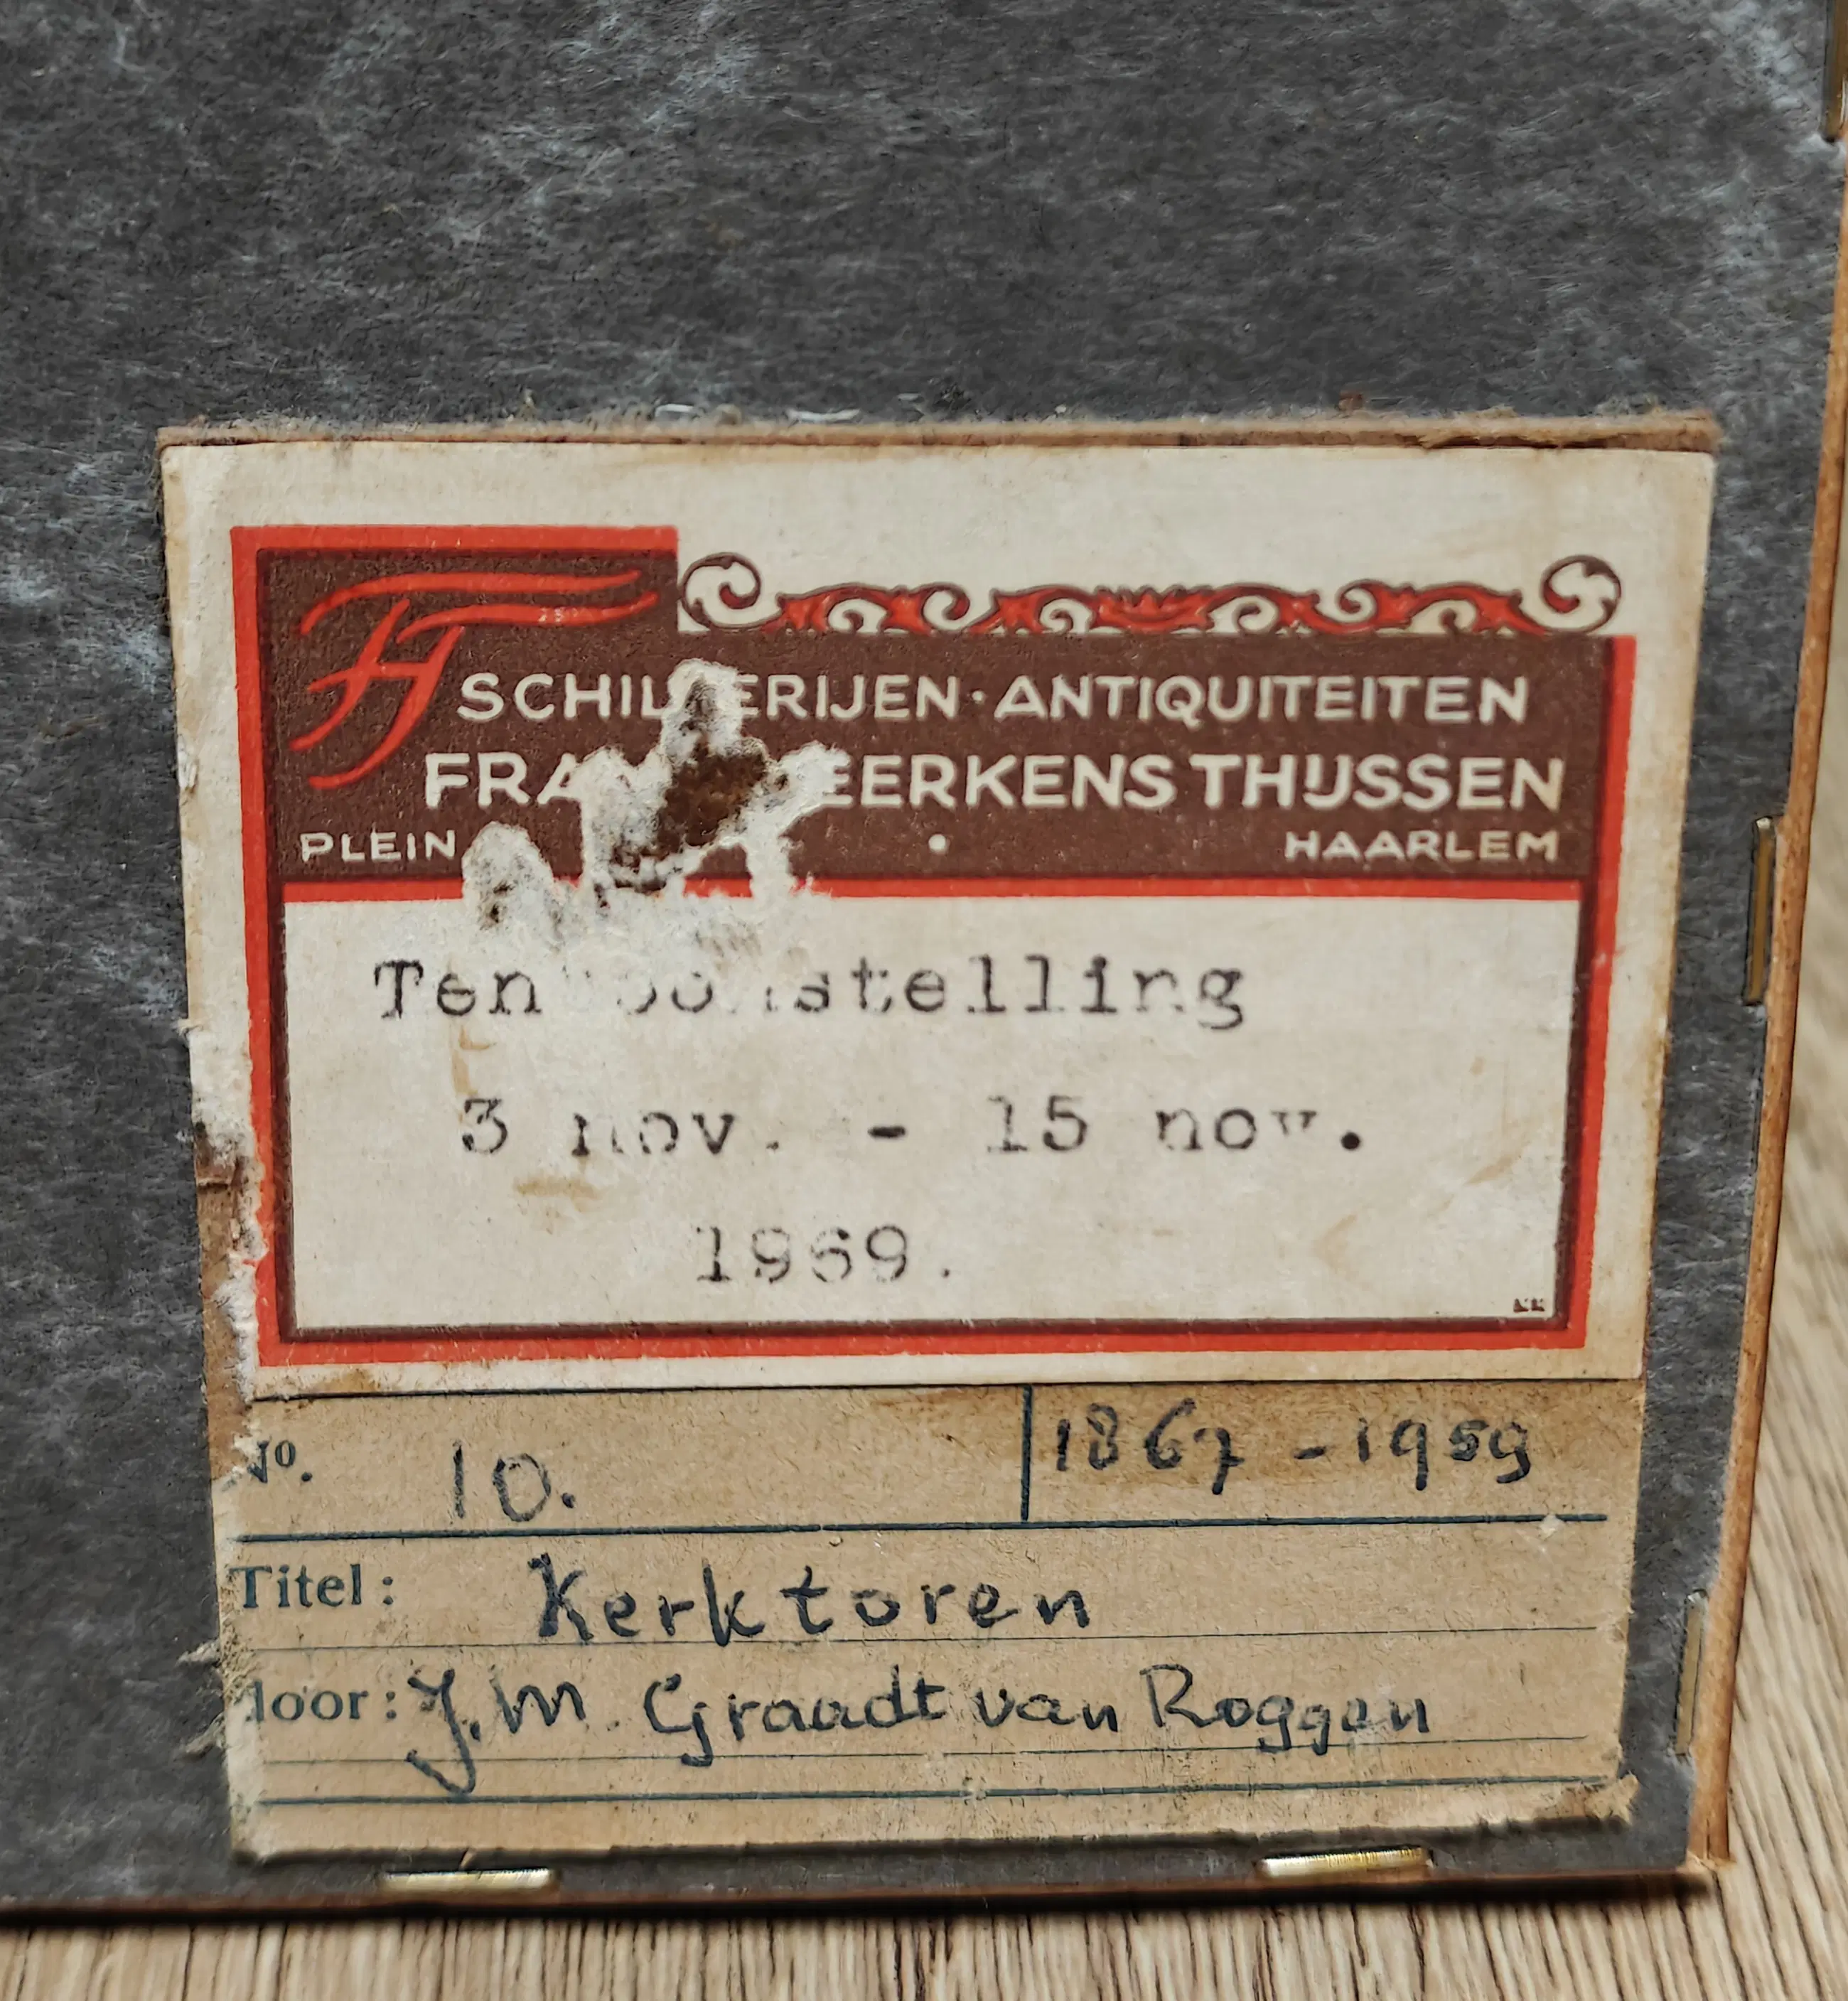 SCHILDERIJEN · ANTIQUITEITEN
EERKENS THIJSSEN
PLEIN · HAARLEM
Tentoonstelling
3 nov. - 15 nov.
1969.
No. 10. 1867 - 1959
Titel: Kerktoren
door: J.M. Graadt van Roggen